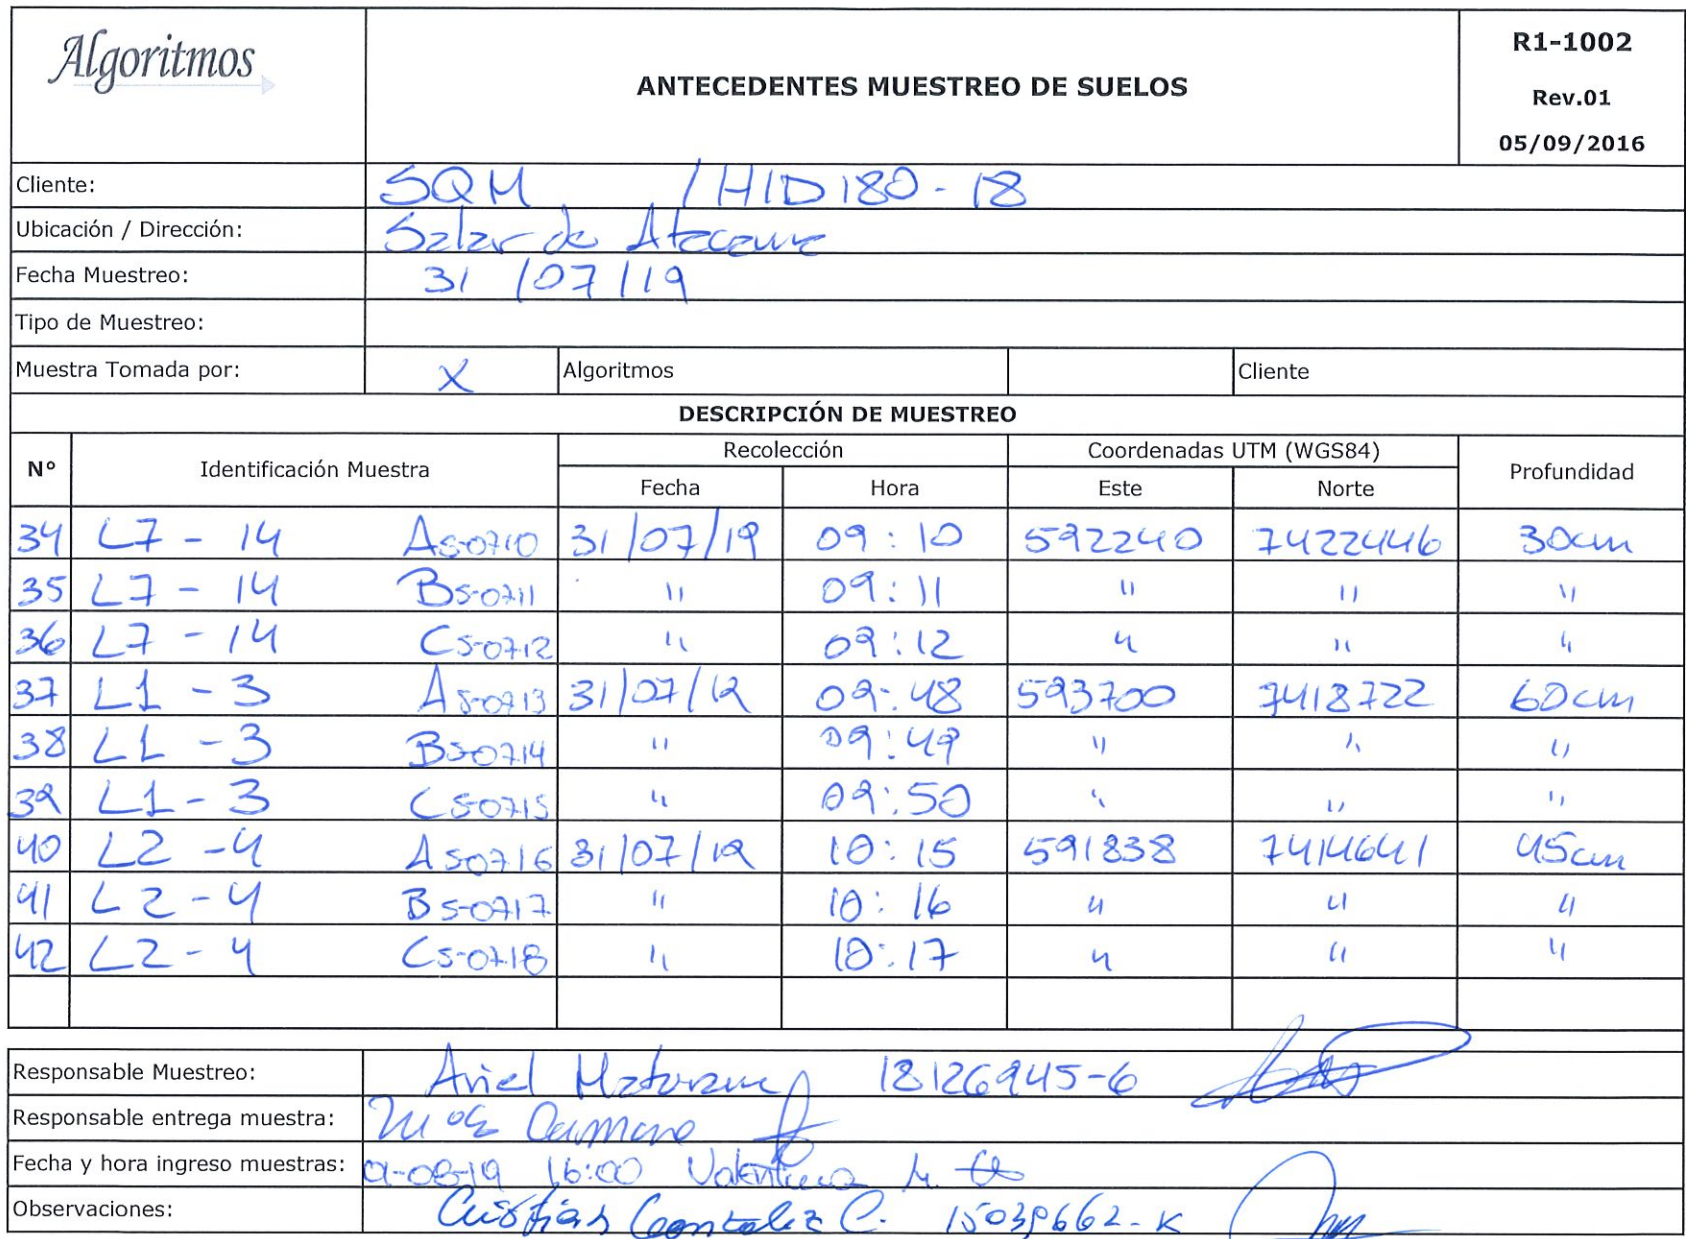 Algoritmos
ANTECEDENTES MUESTREO DE SUELOS
R1-1002
Rev.01
05/09/2016
Cliente: SQM /HID180-18
Ubicación / Dirección: Salar de Atacama
Fecha Muestreo: 31/07/19
Tipo de Muestreo:
Muestra Tomada por: X Algoritmos Cliente
DESCRIPCIÓN DE MUESTREO
Nº Identificación Muestra Recolección Coordenadas UTM (WGS84) Profundidad
Fecha Hora Este Norte
34 L7-14 A S-0710 31/07/19 09:10 592240 7422446 30cm
35 L7-14 B S-0711 " 09:11 " " "
36 L7-14 C S-0712 " 09:12 " " "
37 L1-3 A S-0713 31/07/19 09:48 593700 7418722 60cm
38 L1-3 B S-0714 " 09:49 " " "
39 L1-3 C S-0715 " 09:50 " " "
40 L2-4 A S-0716 31/07/19 10:15 591838 7414641 45cm
41 L2-4 B S-0717 " 10:16 " " "
42 L2-4 C S-0718 " 10:17 " " "
Responsable Muestreo: Ariel Maturana 18126945-6
Responsable entrega muestra:
Fecha y hora ingreso muestras: 01-08-19 16:00 Valentina M.
Observaciones: Cristian Gonzalez C. 15039662-K